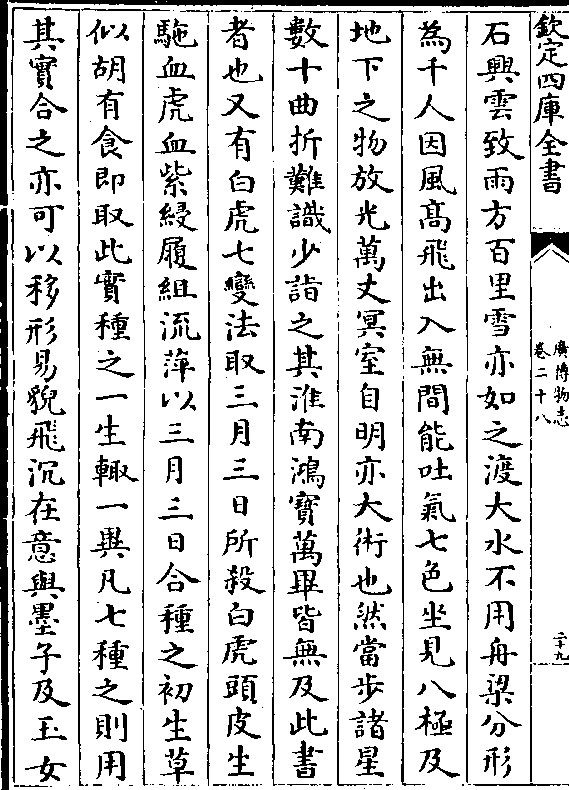 欽定四庫全書
廣博物志
卷二十八
二十九
石興雲致雨方百里雪亦如之渡大水不用舟梁分形
為千人因風髙飛出入無間能吐氣七色坐見八極及
地下之物放光萬丈冥室自明亦大術也然當步諸星
數十曲折難識少諧之其淮南鴻寳萬畢皆無及此書
者也又有白虎七變法取三月三日所殺白虎頭皮生
駞血虎血紫綬履組流萍以三月三日合種之初生草
似胡有食即取此實種之一生輙一異凡七種之則用
其實合之亦可以移形易貌飛沉在意與墨子及玉女